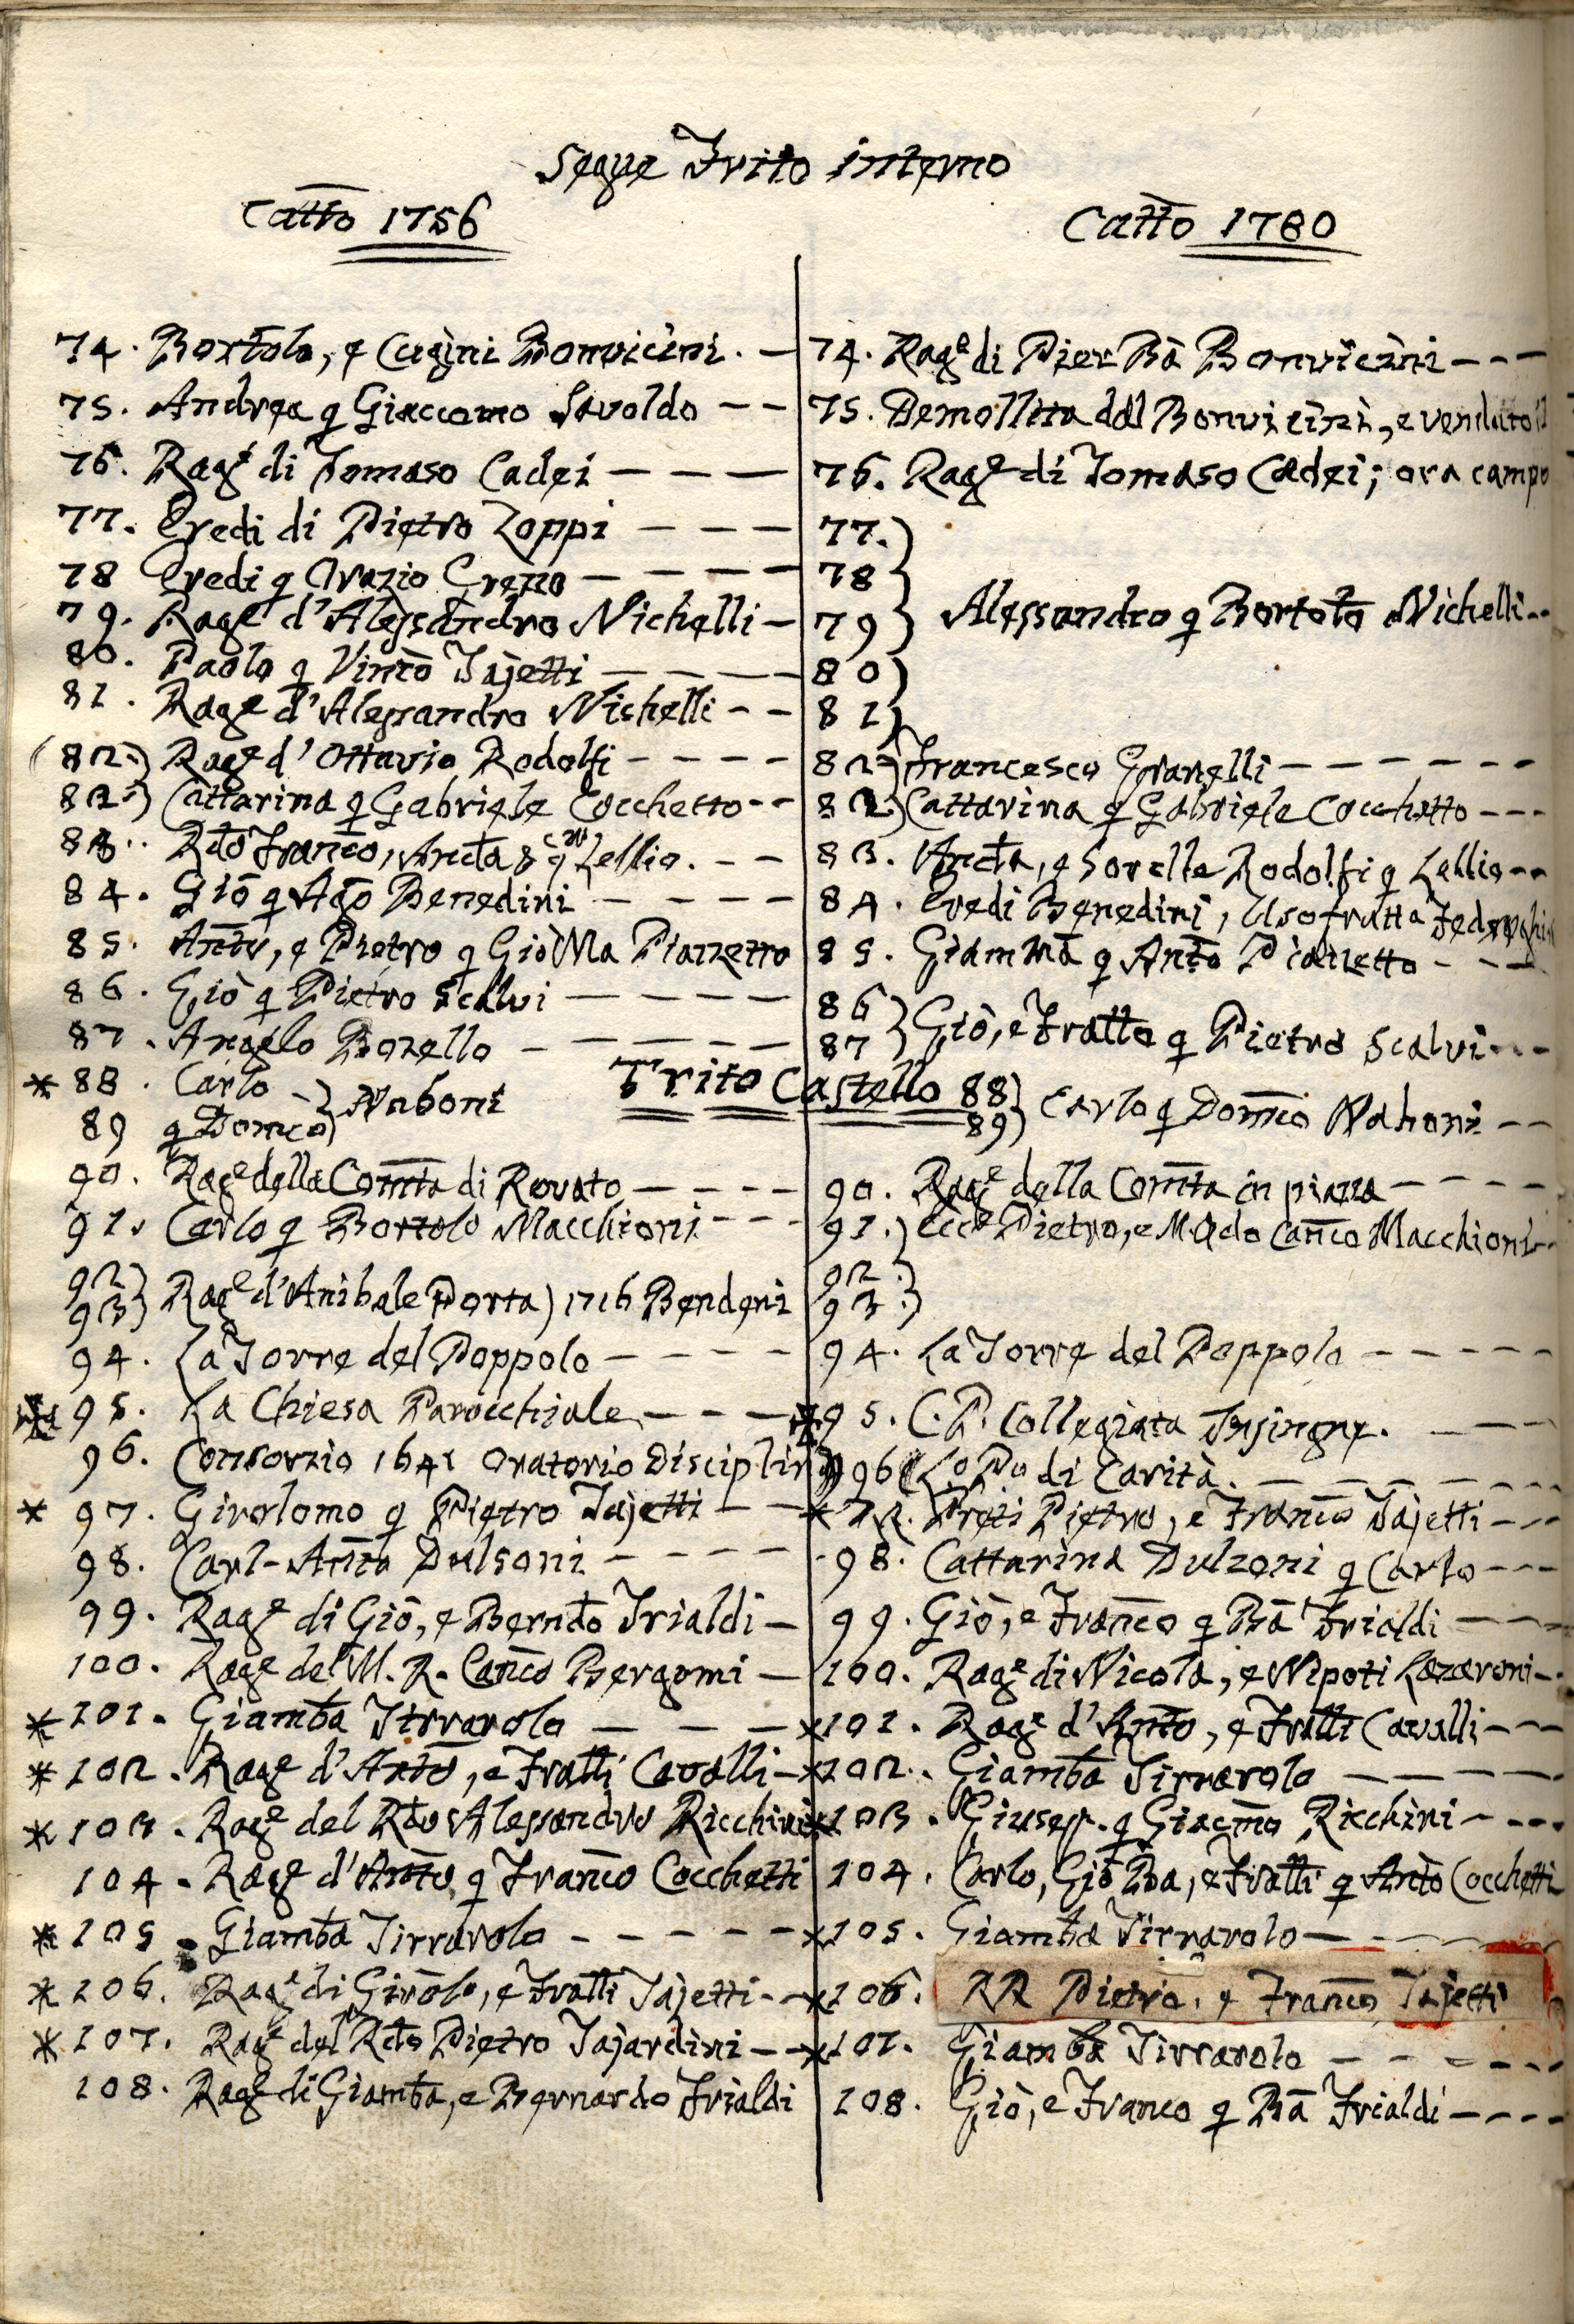 Segue Trito interno
Catto 1756
Catto 1780
74. Bortolo, e Cugini Bonvicini. — 74. Rag.e di Pier Ba Bonvicini - - -
75. Andrea q Giaccomo Savoldo - - 75. Demollita dal Bonvicini, e venduto il
76. Rag.e di Tomaso Cadei — — — 76. Rag.e di Tomaso Cadei; ora campo
77. Eredi di Pietro Zoppi — — — 77.)
78 Eredi q Orazio — — — — 78 }
79. Rag.e d'Alessandro Nichelli — 79 } Alessandro q Bortolo Nichelli - -
80. Paolo q Vinco Tajetti — — — — 80 )
81. Rag.e d'Alessandro Nichelli - - 81 )
(82.) Rag.e d'Ottavio Rodolfi - - - - 82.) Francesco Granelli - - - - - -
82.) Cattarina q Gabriele Cocchetto - - 82.) Cattarina q Gabriele Cocchetto - - -
83. Rdo Franco, Ancta & q Lellio. - - 83. Ancta, e Sorelle Rodolfi q Lellio - -
84. Gio q Ago Benedini - - - - 84. Eredi Benedini, Usofrutta
85. Anto, e Pietro q Gio Ma Piazzetto 85. Giamma q Anto Piazzetto - - -
86. Gio q Pietro Scalvi — — — — 86 }
87. Angelo Bozello - - - - - 87 } Gio, e Fratto q Pietro Scalvi - - -
Trito Castello
* 88. Carlo } Naboni 88 } Carlo q Domco Naboni - -
89 q Domco } 89 }
90. Rag.e della Comta di Rovato - - - - 90. Rag.e della Comta in piazza - - - -
91. Carlo q Bortolo Macchioni - - - 91.) Ecc.e Pietro, e M. Rdo Canco Macchioni - -
92 } Rag.e d'Anibale Porta) 1716 Bendoni 92.)
93 } 93.)
94. La Torre del Poppolo - - - - 94. La Torre del Poppolo - - - - -
* 95. La Chiesa Parocchiale - - - * 95. C. P. Collegiata Insingne. - - -
96. Consorzio 1641 Oratorio Disciplini 96 Lo Po di Carità. - - - - - -
* 97. Girolomo q Pietro Tajetti - - * Preti Pietro, e Franco Tajetti - - -
98. Carl-Anto Dulsoni - - - - 98. Cattarina Dulzoni q Carlo - - -
99. Rag.e di Gio, e Berndo Trialdi — 99. Gio, e Franco q Ba Trialdi - - - -
100. Rag.e del M. R. Canco Bergomi — 100. Rag.e di Nicola, e Nipoti Lazaroni - -
* 101. Giamba Tirrarolo - - - * 101. Rag.e d'Anto, e Fratti Cavalli - - -
* 102. Rag.e d'Anto, e Fratti Cavalli - * 102. Giamba Tirrarolo - - - - -
* 103. Rag.e del Rdo Alessandro Ricchini * 103. Giusep. q Giacmo Ricchini - - - -
104. Rag.e d'Anto q Franco Cocchetti 104. Carlo, Gio Ba, e Fratti q Anto Cocchetti
* 105. Giamba Tirrarolo - - - - - * 105. Giamba Tirrarolo - - - -
* 106. Rag.e di Girolo, e Fratti Tajetti - - * 106. RR Pietro, e Franco Tajetti
* 107. Rag.e del Rdo Pietro Tajardini - - * 107. Giamba Tirrarolo - - - - - -
108. Rag.e di Giamba, e Bernardo Trialdi 108. Gio, e Franco q Ba Trialdi - - - -